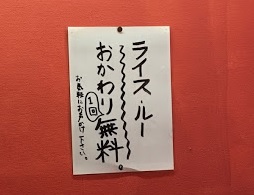 ライス・ルー
おかわり無料
1回
お気軽にお声がけ下さい。